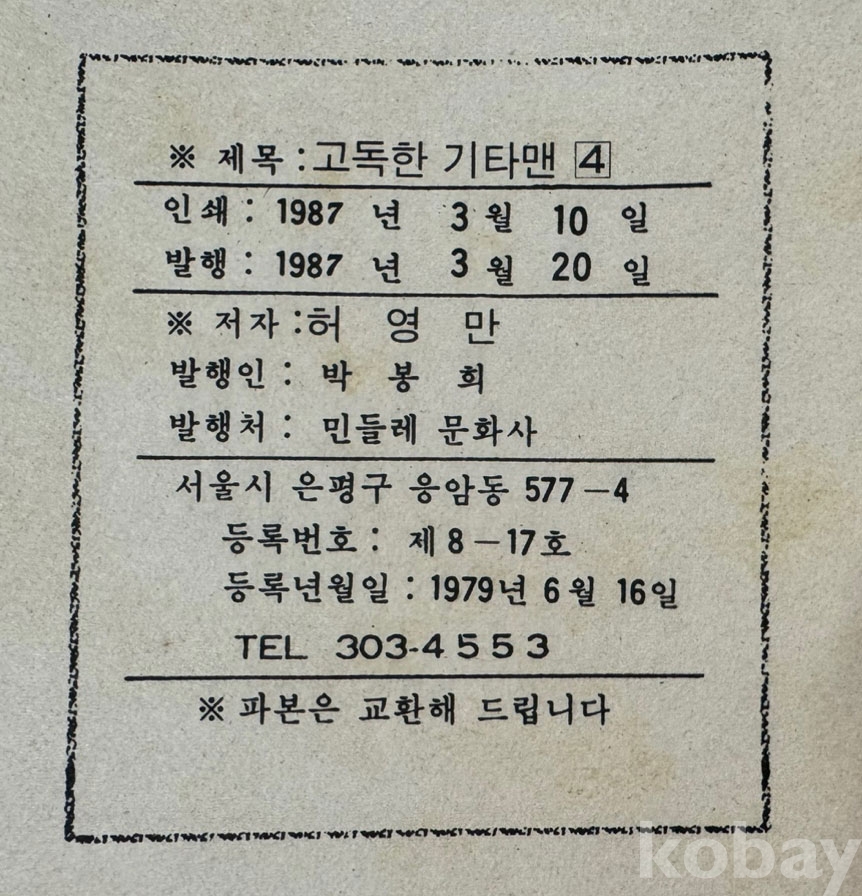 ※ 제목 : 고독한 기타맨 4
인쇄 : 1987 년 3 월 10 일
발행 : 1987 년 3 월 20 일
※ 저자 : 허 영 만
발행인 : 박 봉 희
발행처 : 민들레 문화사
서울시 은평구 응암동 577-4
등록번호 : 제 8-17호
등록년월일 : 1979년 6월 16일
TEL 303-4553
※ 파본은 교환해 드립니다
kobay